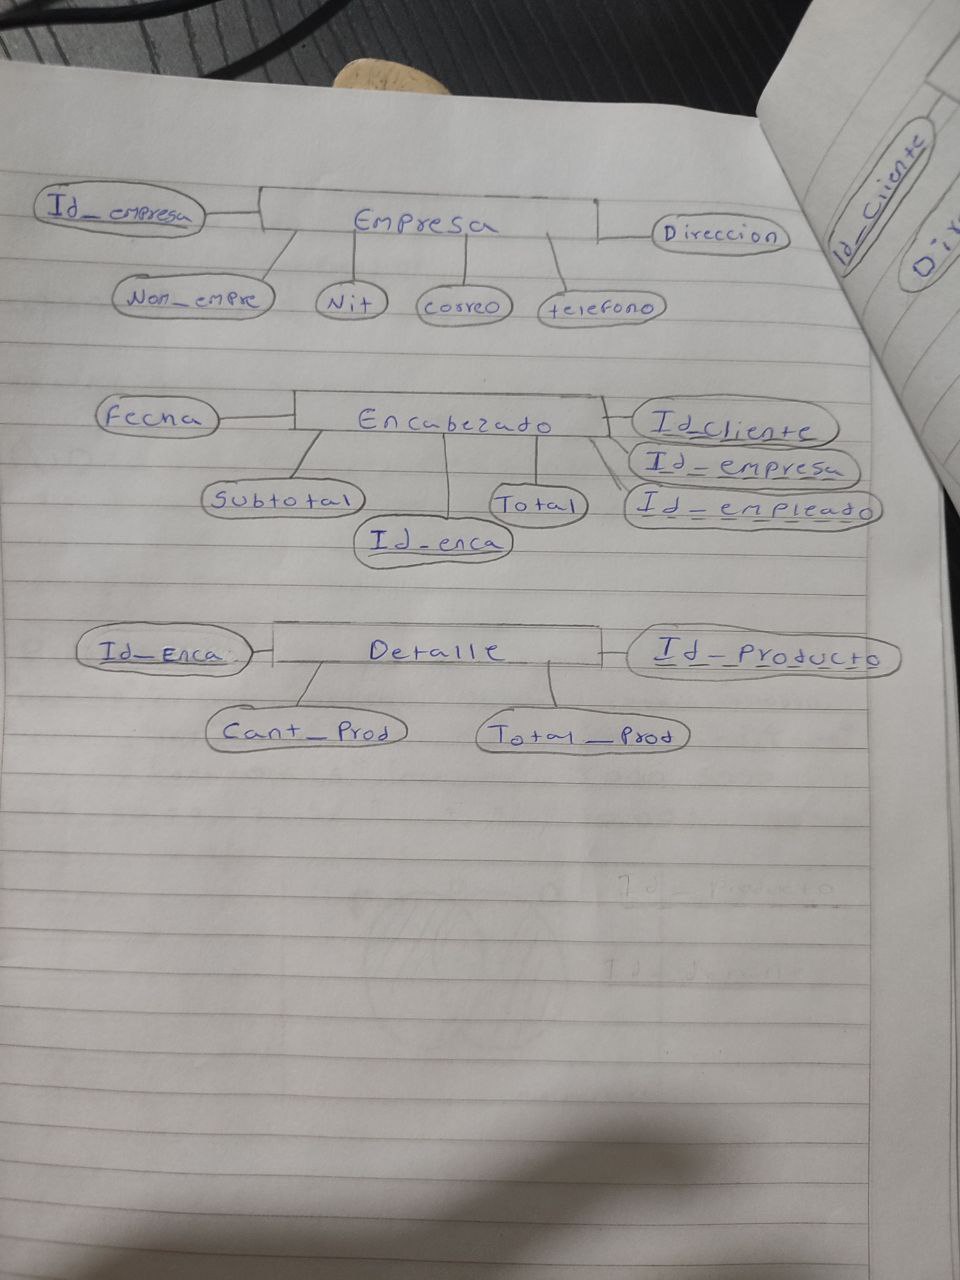 Id_empresa
Empresa
Direccion
Nom_empre
Nit
correo
telefono
Fecha
Encabezado
Id_Cliente
Id_empresa
Id_empleado
Subtotal
Total
Id_enca
Id_Enca
Detalle
Id_Producto
Cant_Prod
Total_Prod
Id_Cliente
Id_Producto